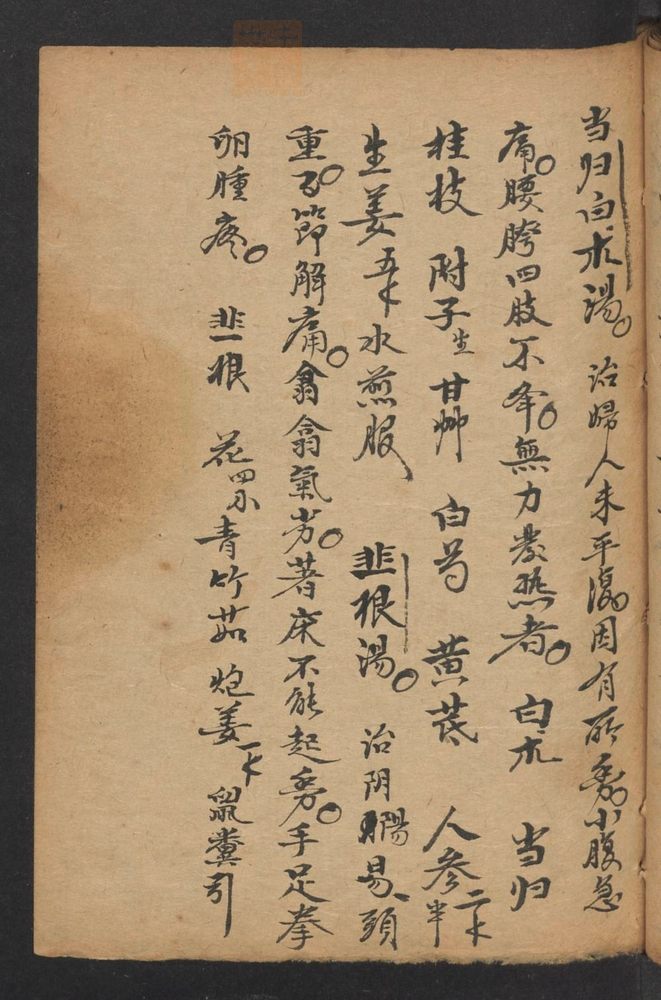 当归白朮湯。治婦人未平復因有所動小腹急
痛。腰胯四肢不举。無力發热者。白朮 当归
桂枝 附子生 甘艸 白芍 黄芪 人参半 二木
生姜五片水煎服 韭根湯。治阴陽易、頭
重。百節解痛。翕翕氣劳。著床不能起動。手足拳
卵腫疼。 韭根 花四分 青竹茹 炮姜一木 鼠糞引